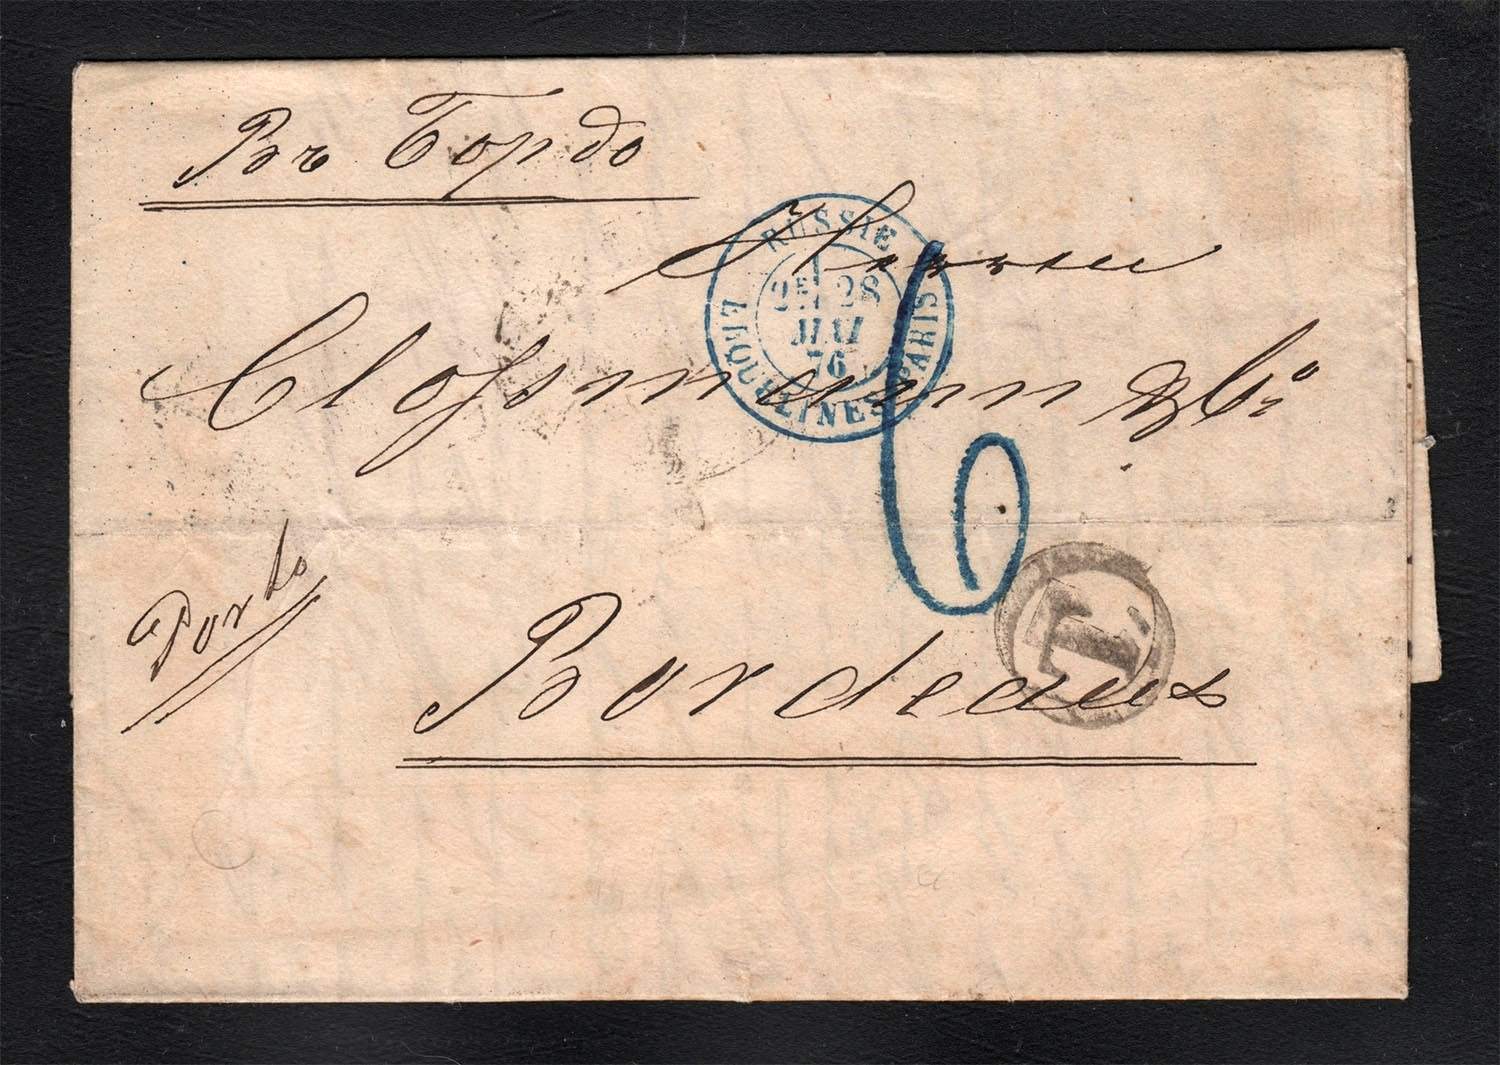 Въ Бордо
RUSSIE
2E 28
MAI
76
ERQUELINES PARIS
Herren
Clossmann & Co
6
Porto
T.
Bordeaux